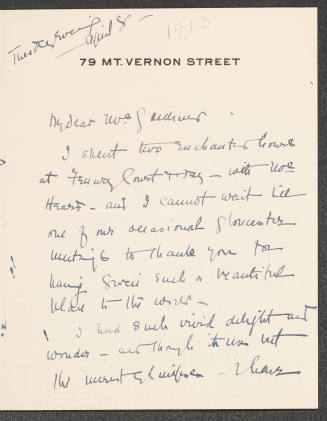 Tuesday Evening
April 8 -
1913
79 MT. VERNON STREET
My dear Mrs Gardner
I spent two enchanted hours
at Fenway Court today - with Mrs
Head - and I cannot wait till
one of our occasional Gloucester
meetings to thank you for
having given such a beautiful
place to the world -
I had such vivid delight and
wonder - and though it was but
the merest glimpse - I have